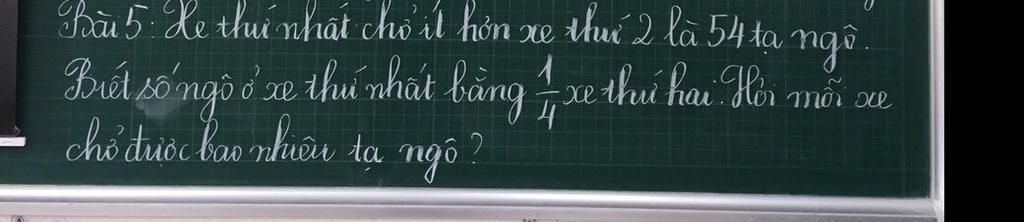 Bài 5. Xe thứ nhất chở ít hơn xe thứ 2 là 54 tạ ngô.
Biết số ngô ở xe thứ nhất bằng 1/4 xe thứ hai. Hỏi mỗi xe
chở được bao nhiêu tạ ngô?